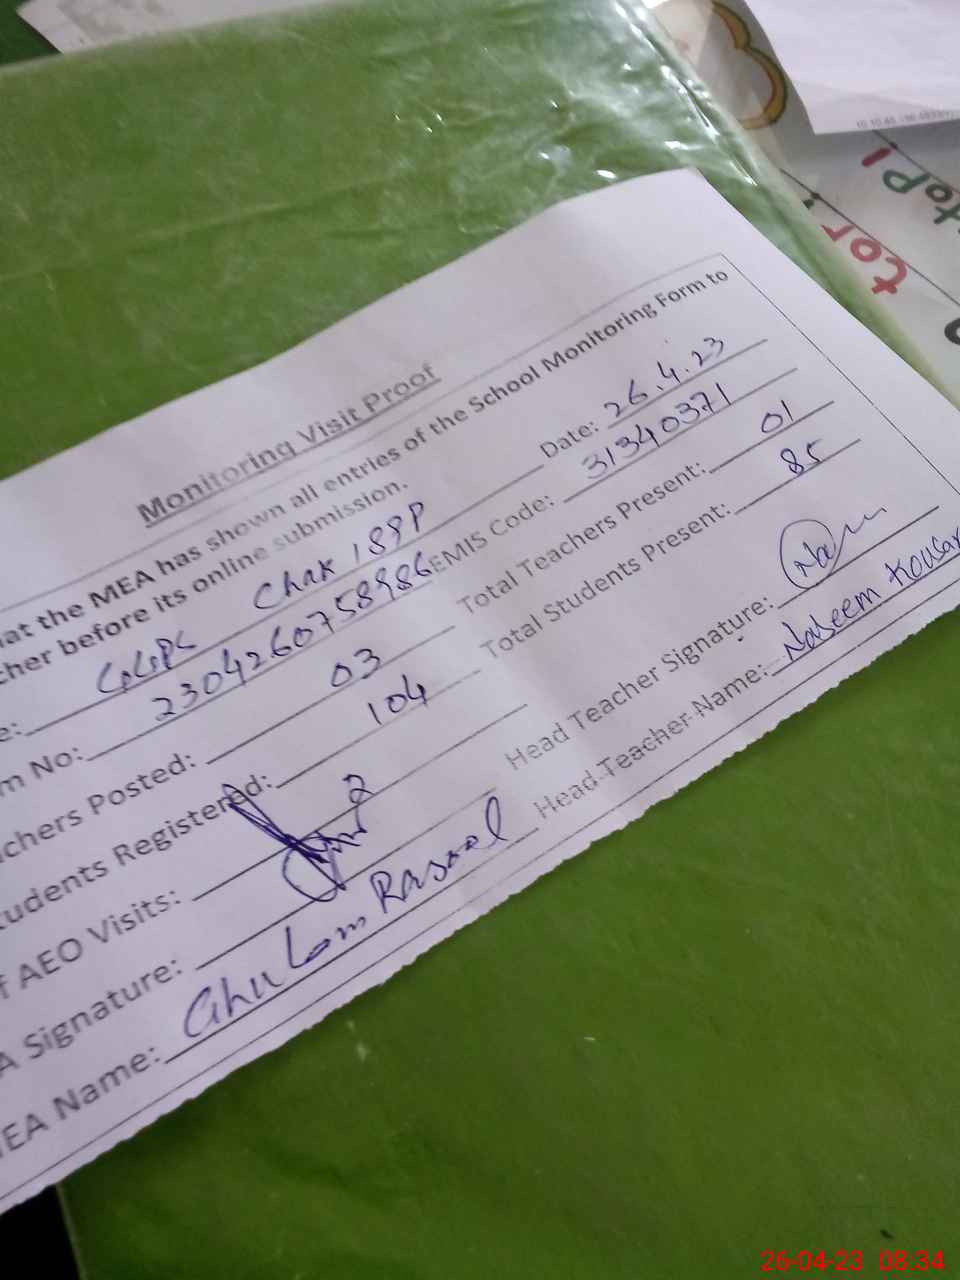 Monitoring Visit Proof
hat the MEA has shown all entries of the School Monitoring Form to
cher before its online submission.
e: GGPS Chak 189P Date: 26.4.23
m No: 2304260758986 EMIS Code: 31340371
chers Posted: 03 Total Teachers Present: 01
tudents Registered: 104 Total Students Present: 85
f AEO Visits: 2 Head Teacher Signature:
A Signature: Head Teacher Name: Naseem Kousar
MEA Name: Ghulam Rasool
26-04-23 08:34